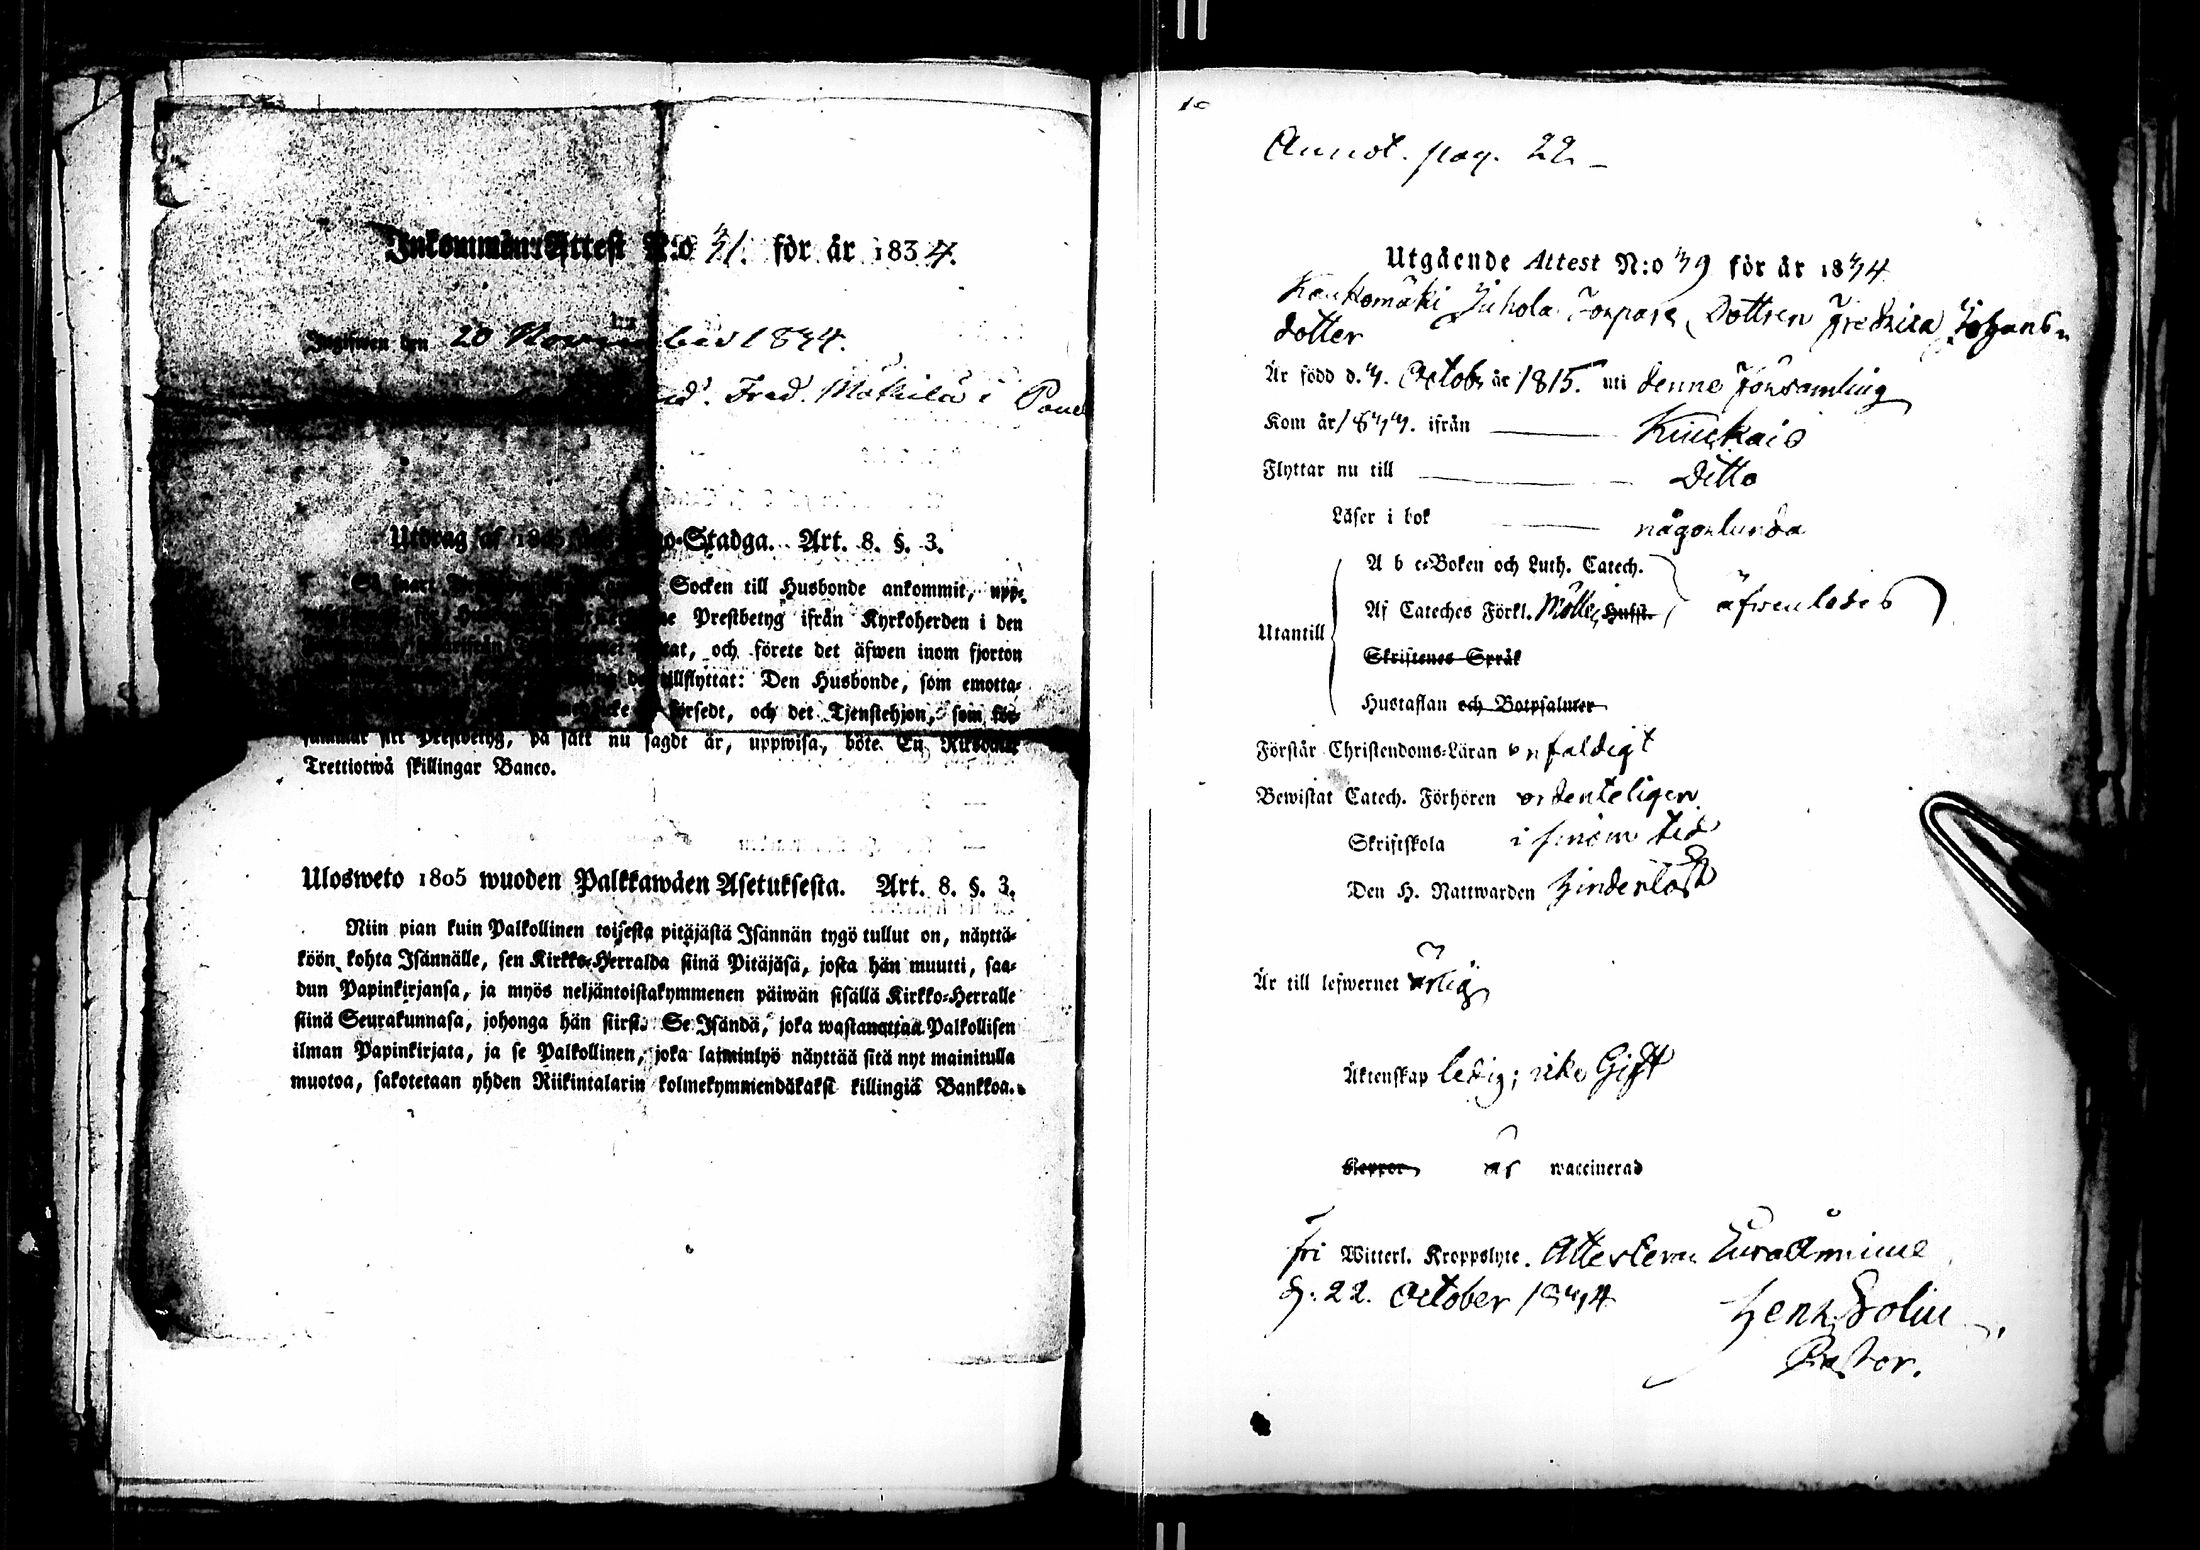 Inkommen Attest N:o 31. för år 1834.
Ingifwen den 20 November 1834.
Fred. Mathila i
Utdrag af 1805 Stadga. Art. 8. §. 3.
Socken till Husbonde ankommit, upp-
Prestbetyg ifrån Kyrkoherden i den
och förete det äfwen inom fjorton
tillflyttat: Den Husbonde, som emotta-
försedt, och det Tjenstehjon, som för-
summar sitt Prestbetyg, på sätt nu sagdt är, uppwisa, böte En Riksdaler
Trettiotwå skillingar Banco.
Ulosweto 1805 wuoden Palkkawäen Asetuksesta. Art. 8. §. 3.
Niin pian kuin Palkollinen toisesta pitäjästä Isännän tygö tullut on, näyttä-
köön kohta Isännälle, sen Kirkko-Herralda siinä Pitäjäsä, josta hän muutti, saa-
dun Papinkirjansa, ja myös neljäntoistakymmenen päiwän sisällä Kirkko-Herralle
siinä Seurakunnasa, johonga hän siirst. Se Isändä, joka wastanottaa Palkollisen
ilman Papinkirjata, ja se Palkollinen, joka laiminlyö näyttää sitä nyt mainitulla
muotoa, sakotetaan yhden Riikintalarin kolmekymmendäkaksi killingiä Bankkoa.
Annot. pag. 22
Utgående Attest N:o 39 för år 1834
Kaukomäki Juhola Torpare Dottren Fredrica Johans-
dotter
Är född d. 3. Octob år 1815. uti denne Församling
Kom år 1833. ifrån Kiuckais
Flyttar nu till Ditto
Läser i bok någorlunda
A b c-Boken och Luth. Catech.
Af Cateches Förkl. Möllers Husst. äfwenledes
Utantill
Skriftenes Språk
Hustaflan och Botpsalmer
Förstår Christendoms-Läran enfaldigt
Bewistat Catech. Förhören ordenteligen
Skriftskola i sinom tid
Den H. Nattwarden hinderlöst
Är till lefwernet ärlig
Äktenskap ledig; icke Gift
Koppor är waccinerad
fri Witterl. Kroppslyte. Attesterar Euraåminne
d. 22. October 1834
Henr. Dolin
Pastor.